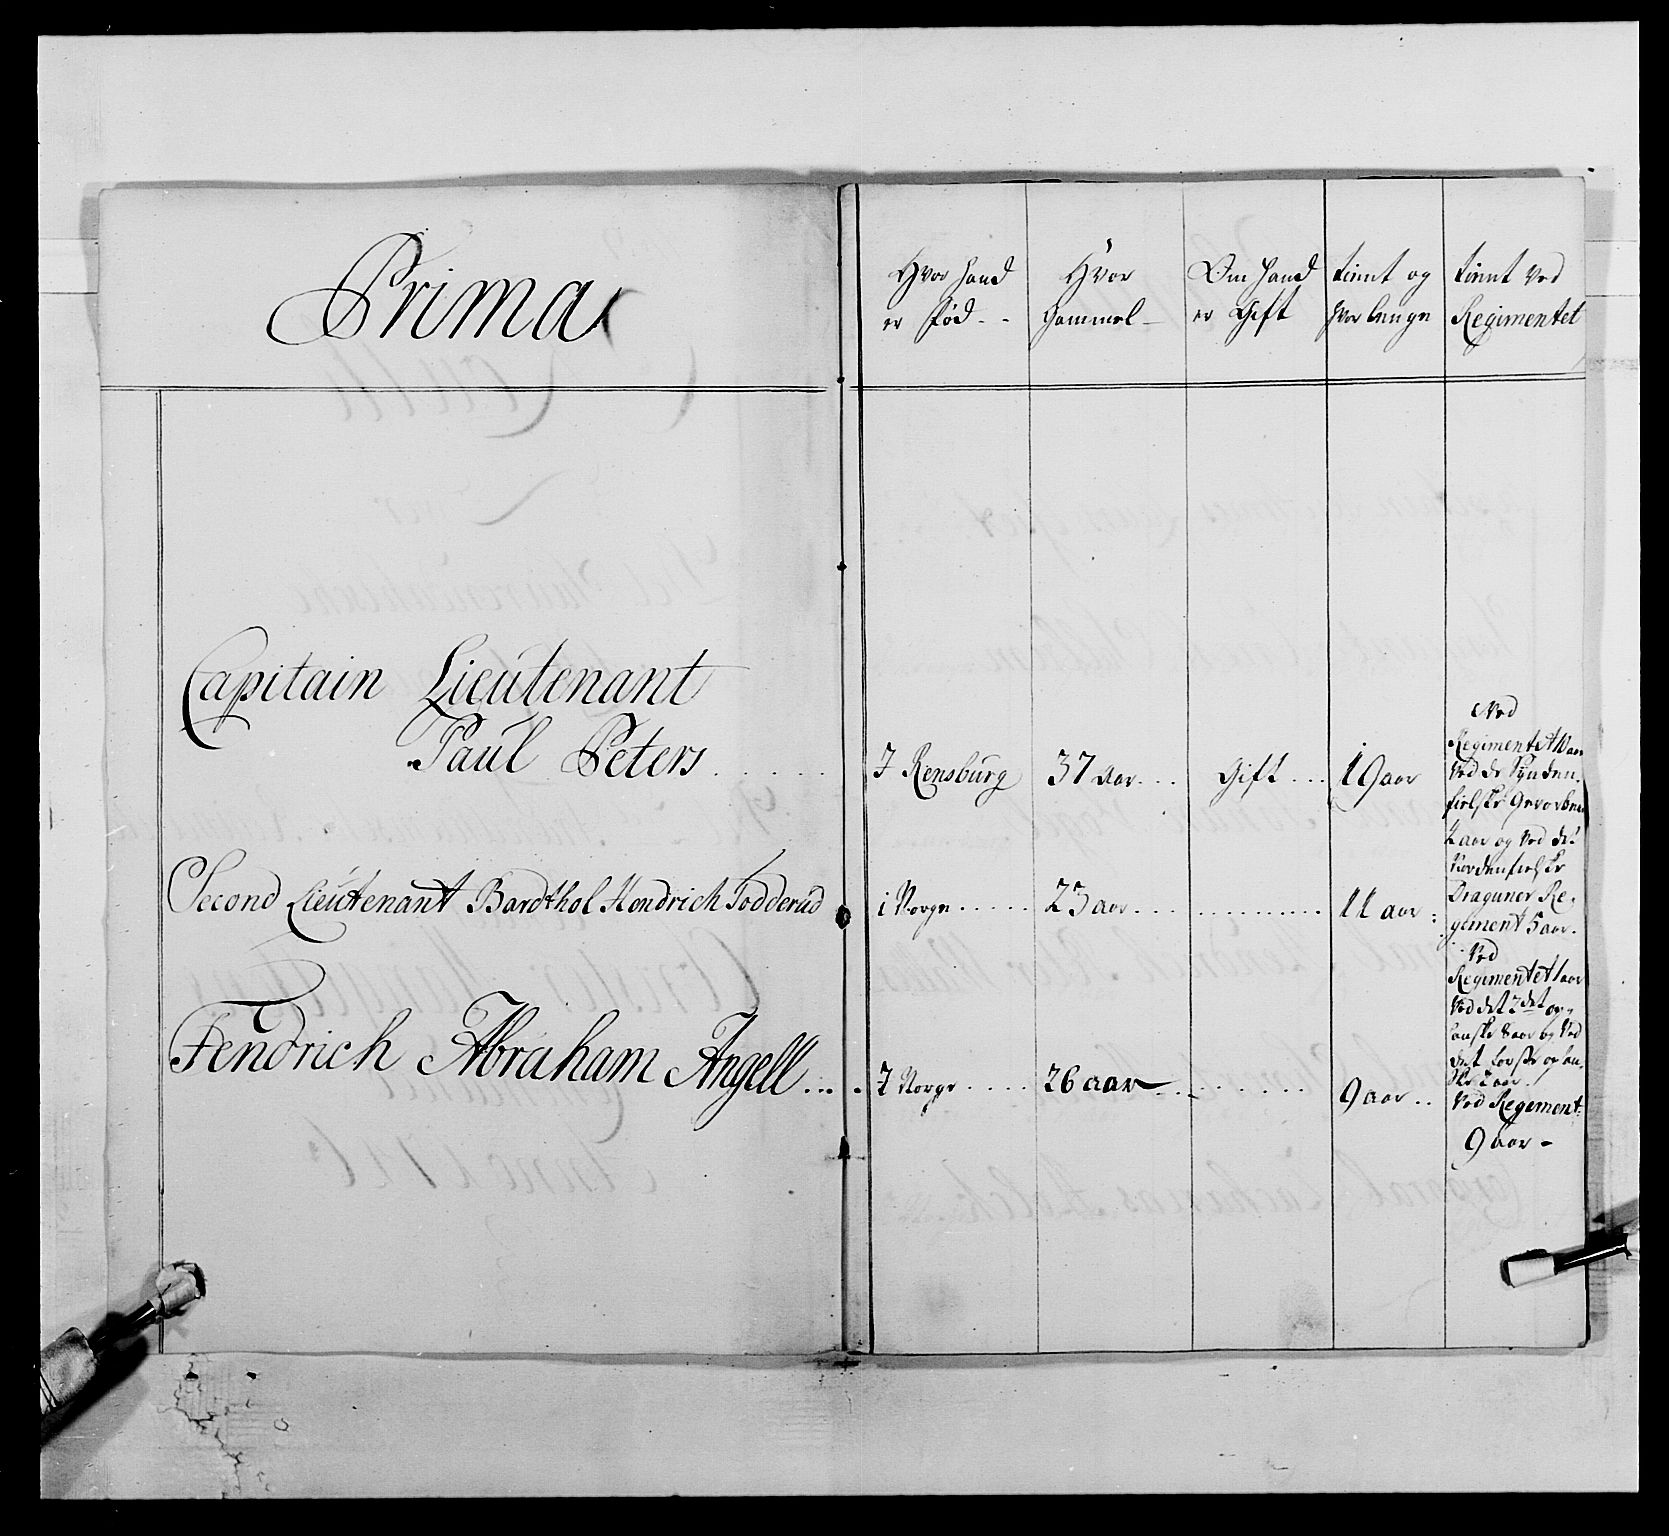 Prima
Hvor hand er fød - -
Hvor Gammel -
Om hand er Gift
tient og hvor lenge
tient ved Regimentet
Capitain Lieutenant
Paul Peters . . . . . I Rensburg 37 aar . . . Gift . . . 19 aar
Ved
Regimentet 10 aar
Ved de Synden-
fielske Gevorbne
4 aar og Ved det
Nordenfielske
Draguner Re-
giment 5 aar.
Second Lieutenant Bardthol Hendrich Todderud i Norge . . . . . 23 aar . . . . . . . . . . . 11 aar
Ved
Regimentet 1 aar
Ved det 2det op-
landske 8 aar og Ved
det første oplan-
ske 2 aar.
Fendrich Abraham Angell . . . . I Norge . . . . 26 aar . . . . . . . . . 9 aar . .
Ved Regiment:
9 aar -